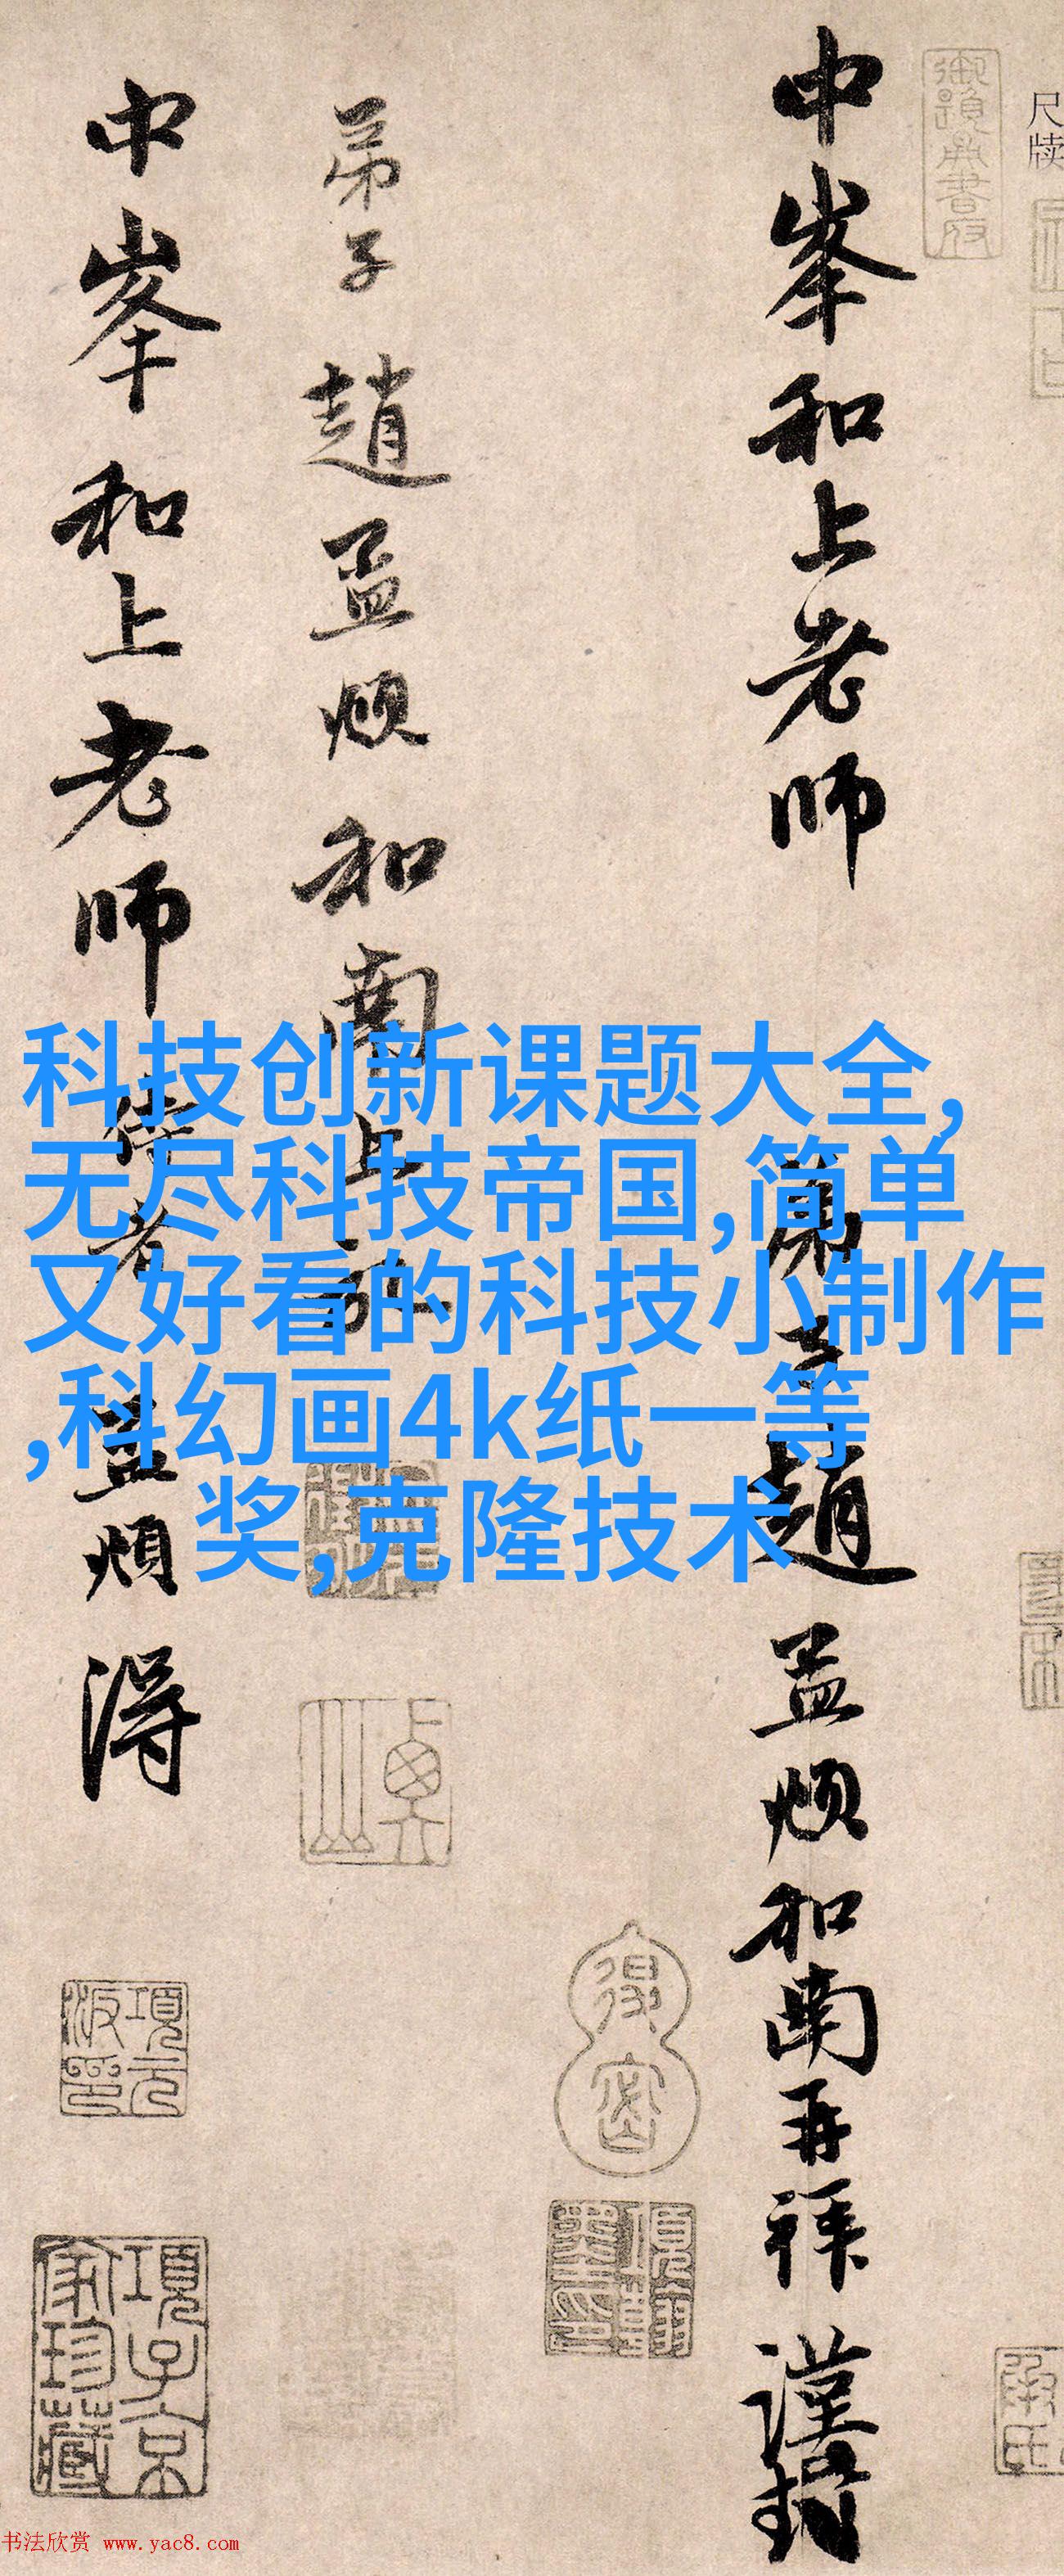 尺牍
中峯和上老師
弟子趙孟頫和南再拜謹封
弟子趙孟頫和南上
中峯和上老師侍者 孟頫
科技创新课题大全,
无尽科技帝国,简单
又好看的科技小制作
,科幻画4k纸一等
奖,克隆技术
項子京家珍藏
书法欣赏 www.yac8.com